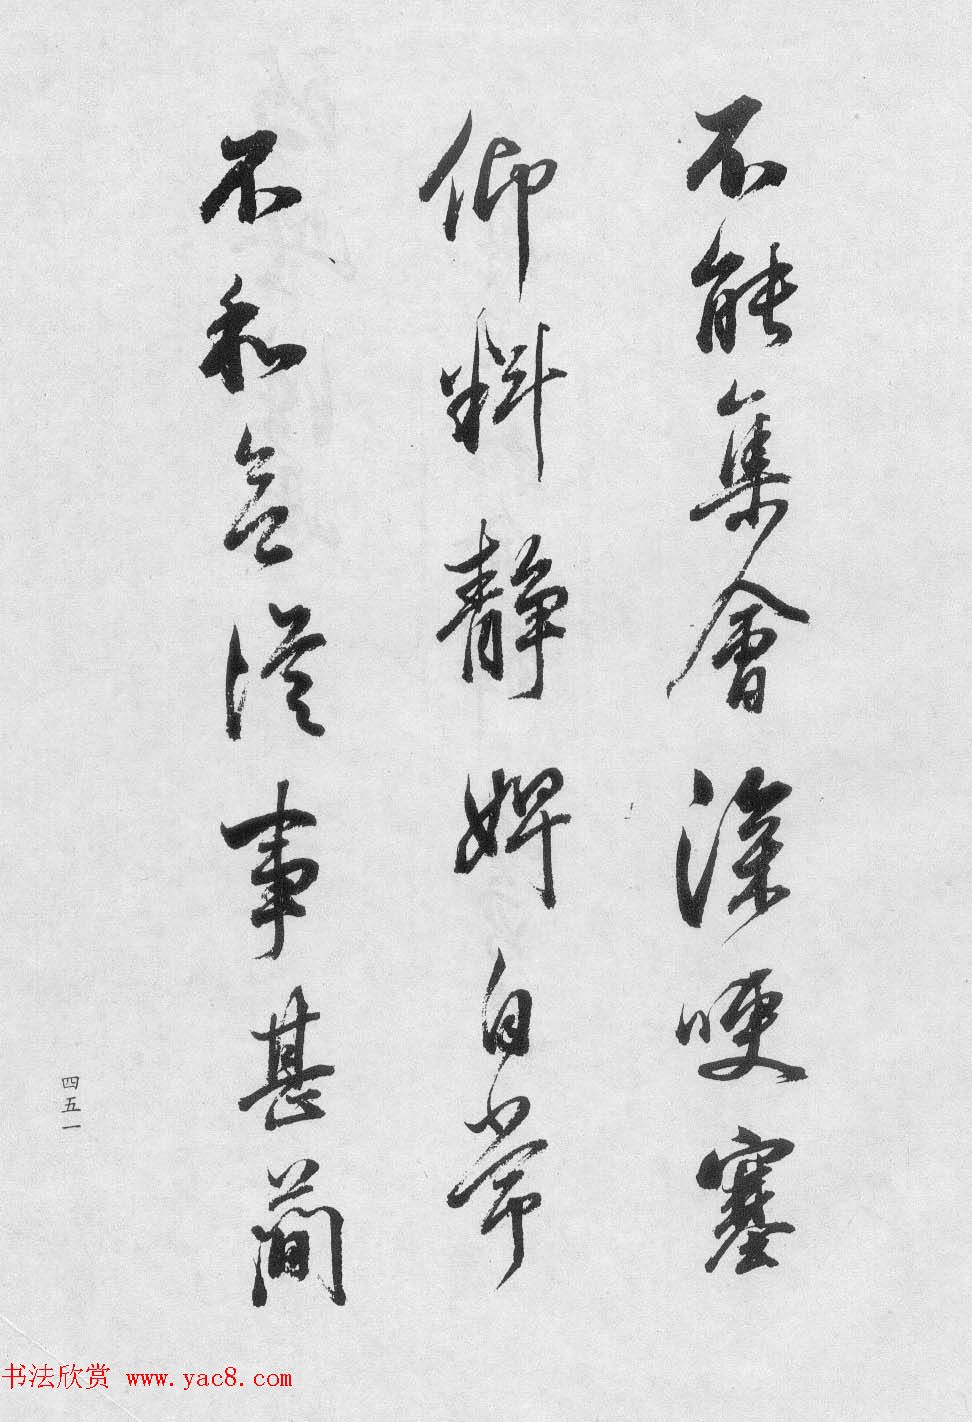 不能集會深哽塞
仰料靜婢自常
不和從事甚簡
四五一
书法欣赏 www.yac8.com